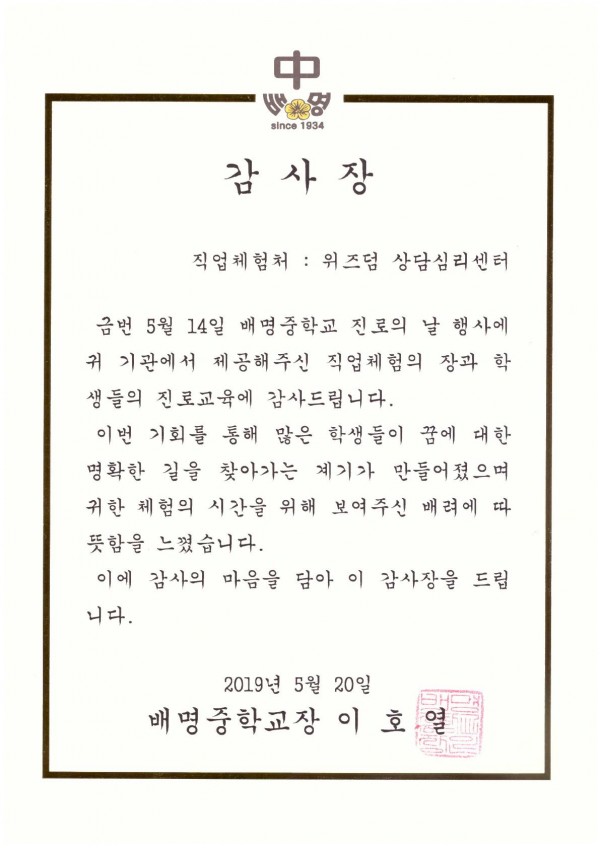 中
배명
since 1934
감 사 장
직업체험처 : 위즈덤 상담심리센터
금번 5월 14일 배명중학교 진로의 날 행사에
귀 기관에서 제공해주신 직업체험의 장과 학
생들의 진로교육에 감사드립니다.
이번 기회를 통해 많은 학생들이 꿈에 대한
명확한 길을 찾아가는 계기가 만들어졌으며
귀한 체험의 시간을 위해 보여주신 배려에 따
뜻함을 느꼈습니다.
이에 감사의 마음을 담아 이 감사장을 드립
니다.
2019년 5월 20일
배명중학교장 이 호 열